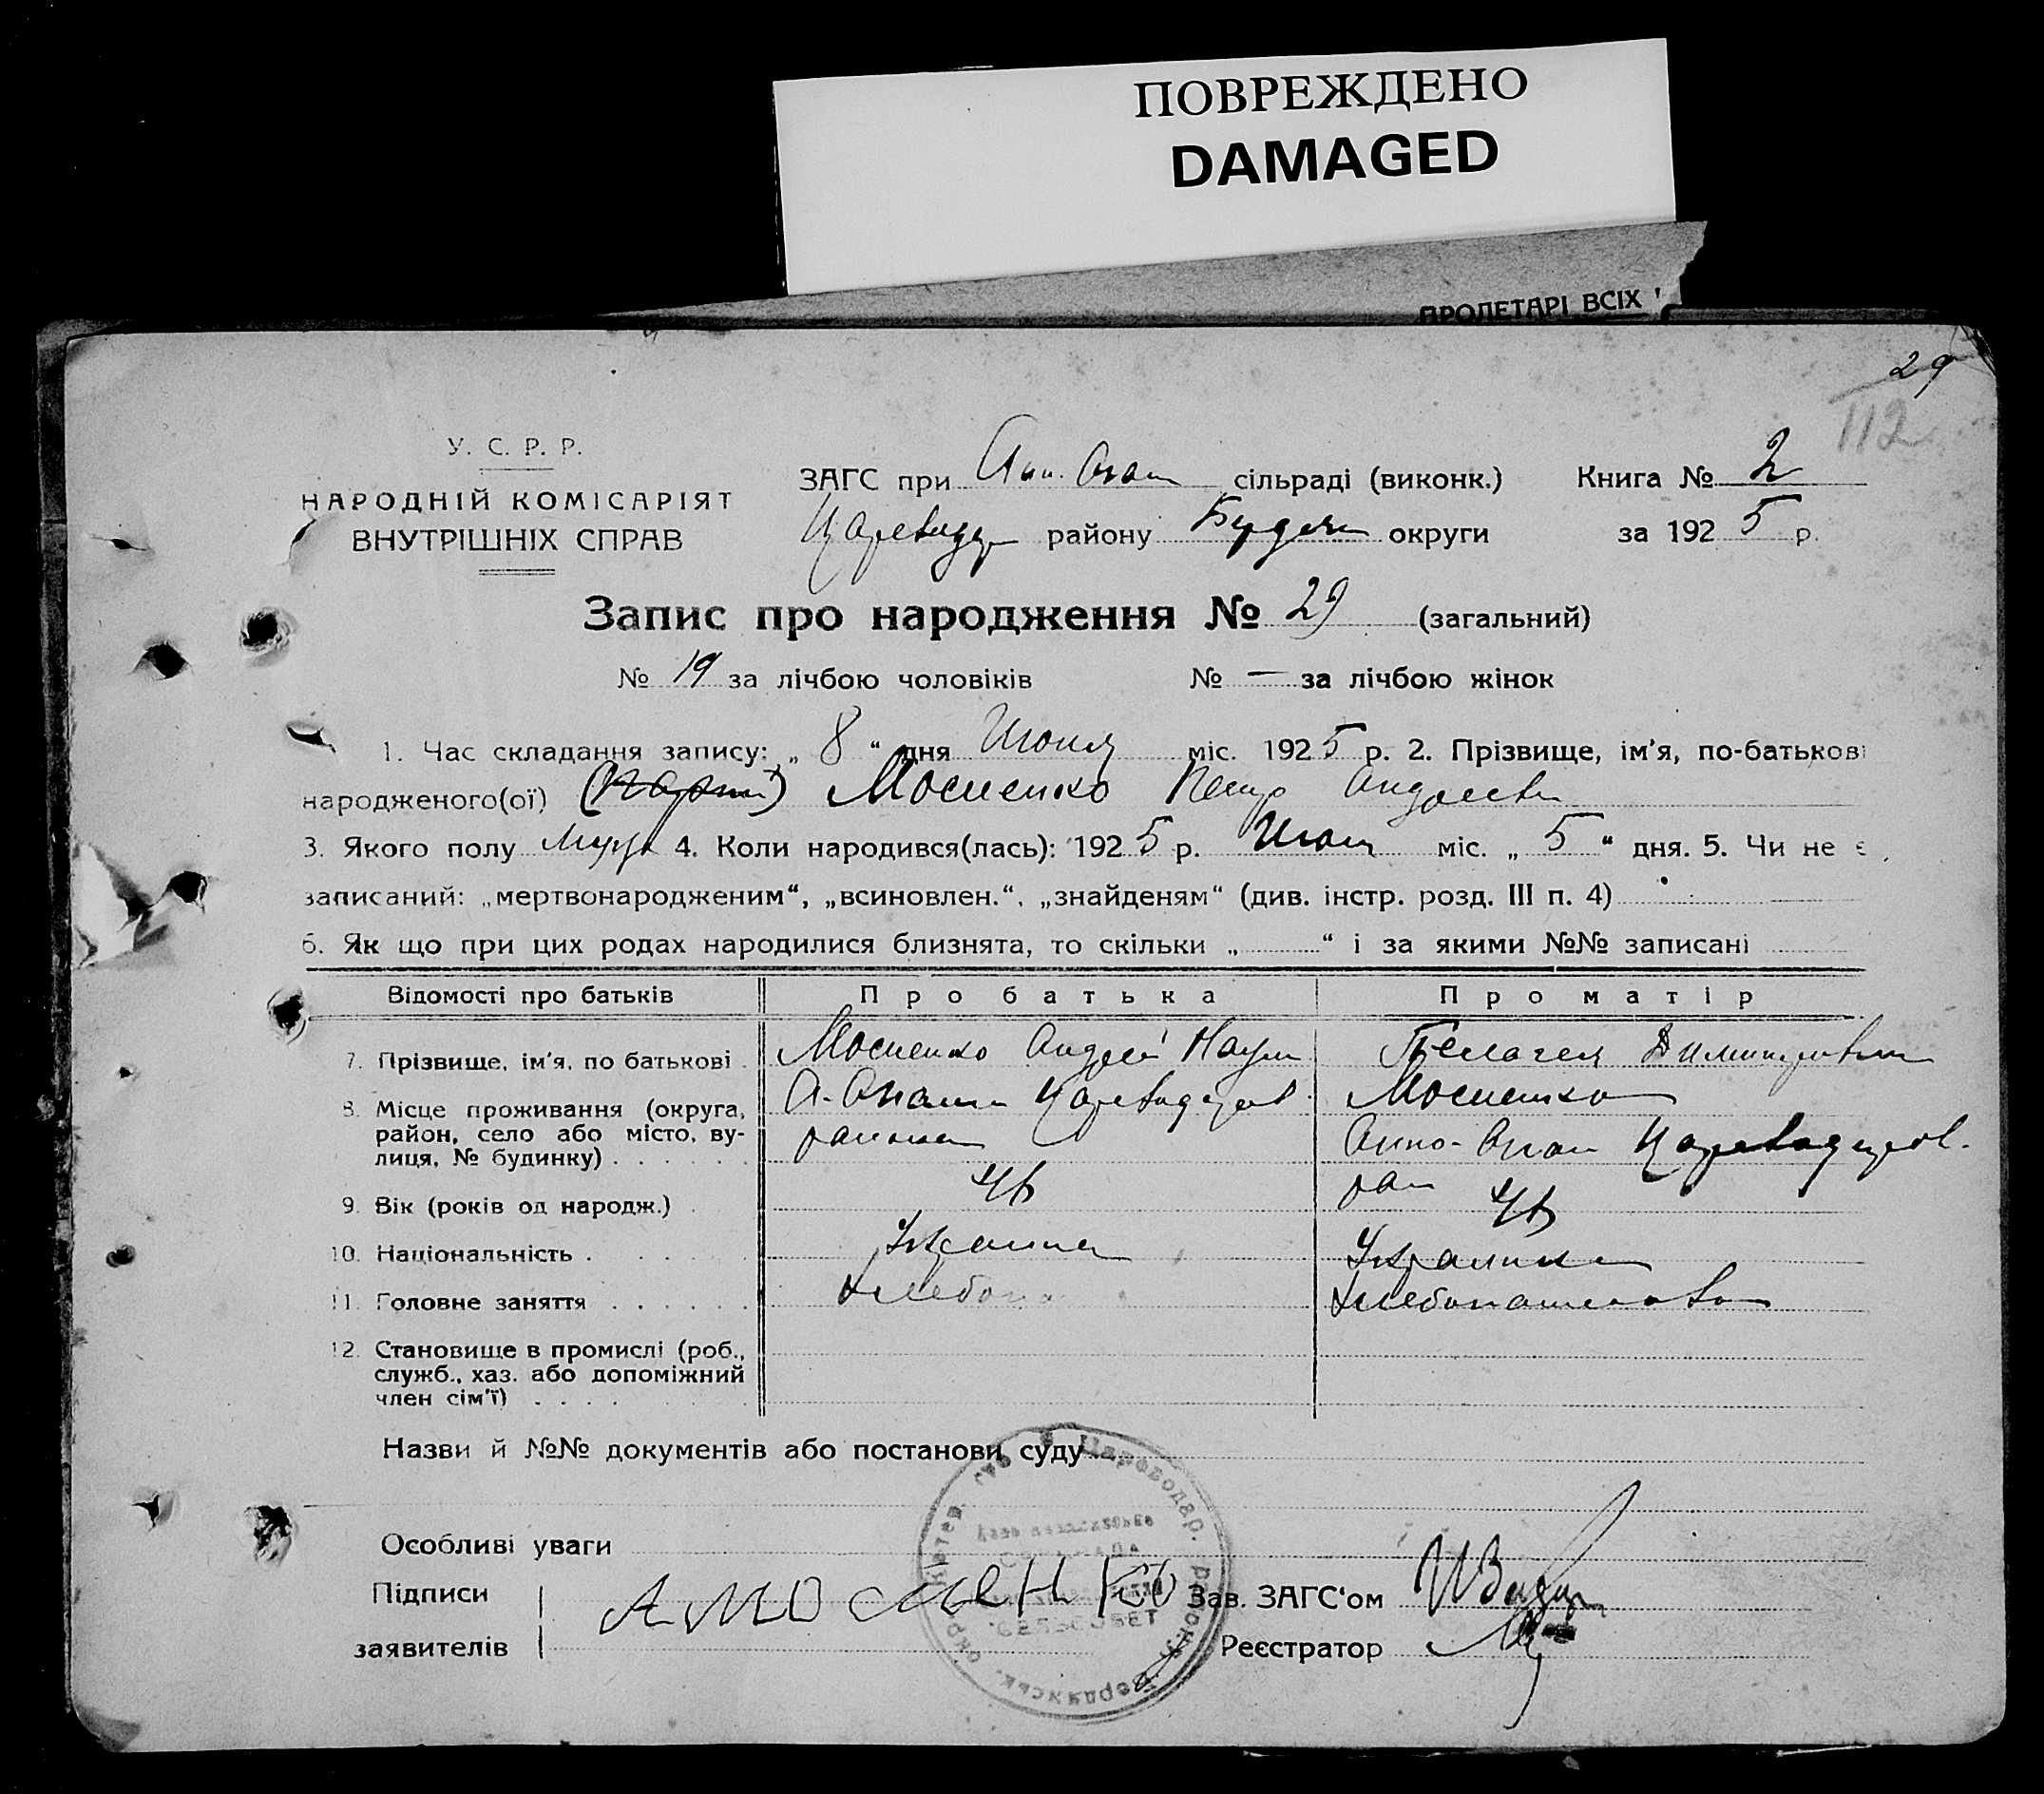 ПОВРЕЖДЕНО
DAMAGED
ПРОЛЕТАРІ ВСІХ
29
112
У. С. Р. Р.
НАРОДНІЙ КОМІСАРІЯТ
ВНУТРІШНІХ СПРАВ
ЗАГС при сільраді (виконк.) Книга № 2
району округи за 1925 р.
Запис про народження № 29 (загальний)
№ 19 за лічбою чоловіків № — за лічбою жінок
1. Час складання запису: „ 8 “ дня Июня міс. 1925 р. 2. Прізвище, ім'я, по-батькові
народженого(ої) Мосиенко Петр Андреев
3. Якого полу муж 4. Коли народився(лась): 1925 р. Июн міс. „ 5 “ дня. 5. Чи не є
записаний: „мертвонародженим“, „всиновлен.“, „знайденям“ (див. інстр. розд. III п. 4)
6. Як що при цих родах народилися близнята, то скільки „ “ і за якими №№ записані
Відомості про батьків Про батька Про матір
7. Прізвище, ім'я, по батькові Мосиенко Андрей Наум Пелагея
8. Місце проживання (округа, Мосиенко
район, село або місто, ву-
лиця, № будинку)
9. Вік (років од народж.)
10. Національність Украинец Украинка
11. Головне заняття
12. Становище в промислі (роб.,
служб., хаз. або допоміжний
член сім'ї)
Назви й №№ документів або постанови суду
Особливі уваги
Підписи
заявителів
А Мосиенко
Зав. ЗАГС‘ом
Реєстратор